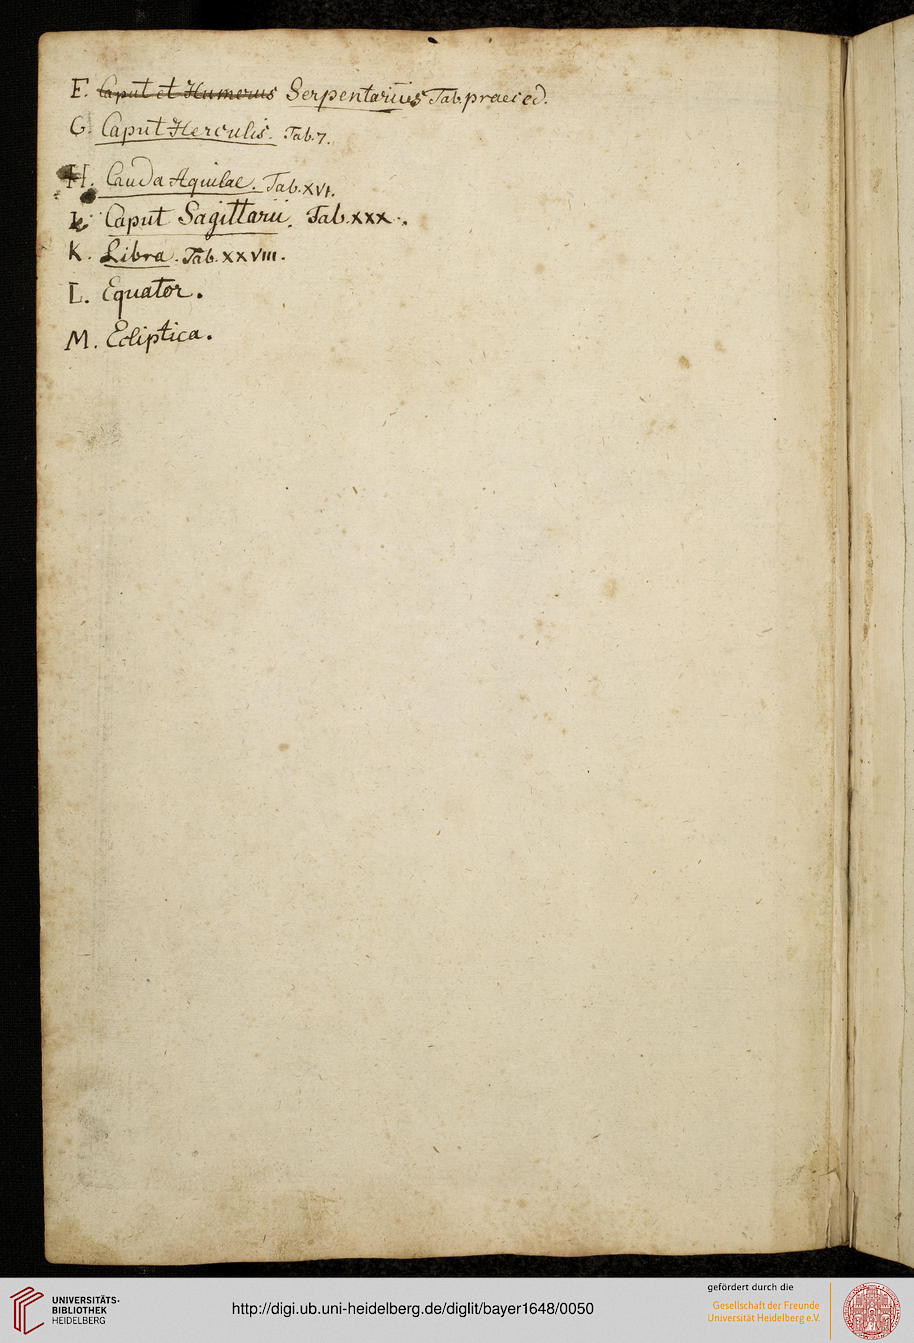 F. Caput et Humerus Serpentarius Tab. praeced.
G. Caput Herculis. Tab. 7.
H. Cauda Aquilae. Tab. XVI.
I. Caput Sagittarii. Tab. XXX.
K. Libra. Tab. XXVIII.
L. Equator.
M. Ecliptica.
UNIVERSITÄTS-
BIBLIOTHEK
HEIDELBERG
http://digi.ub.uni-heidelberg.de/diglit/bayer1648/0050
gefördert durch die
Gesellschaft der Freunde
Universität Heidelberg e.V.